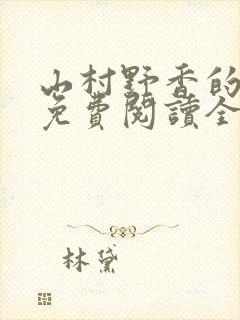 山村野香的
免費閱讀全
林黛